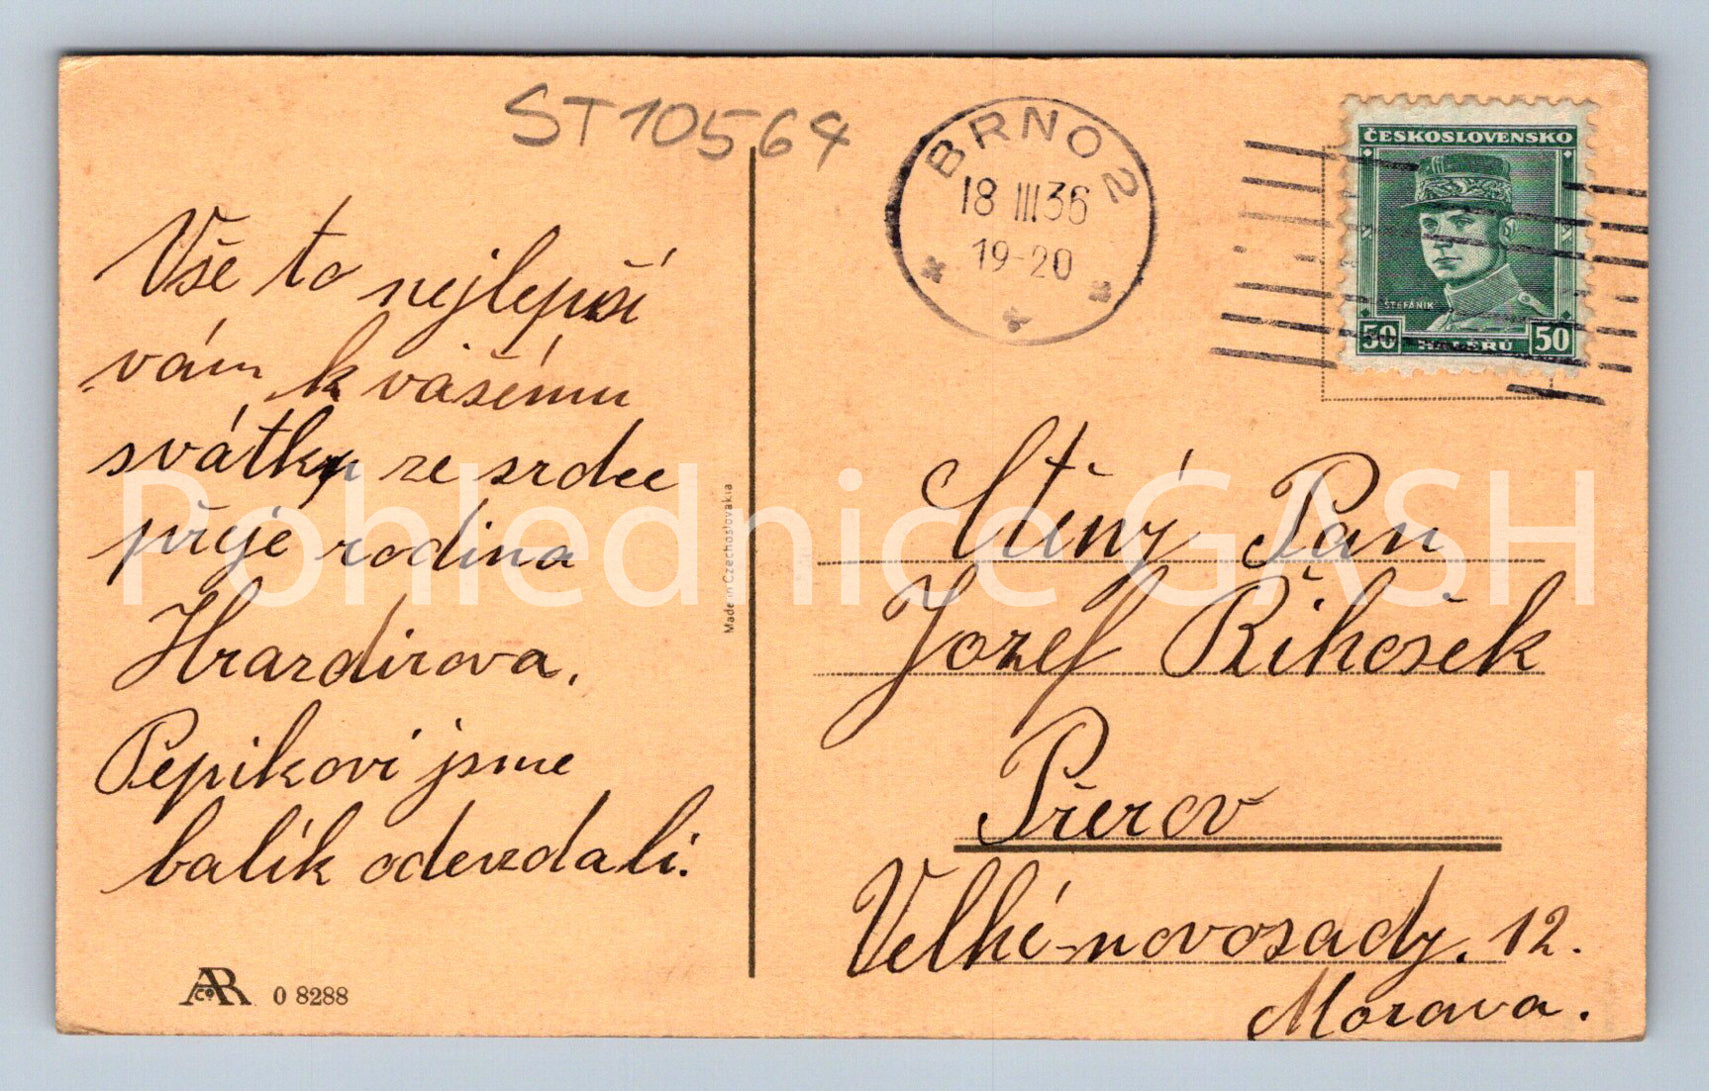 ST10564
BRNO 2
18 III 36
19-20
ČESKOSLOVENSKO
ŠTEFÁNIK
50 HALÉŘŮ 50
Vše to nejlepší
vám k vašému
svátku ze srdce
přeje rodina
Hrazdirova.
Pepikovi jsme
balík odevzdali.
Made in Czechoslovakia
Ctěný Pan
Jozef Řihošek
Přerov
Velké-novosady. 12.
Morava.
ARCo O 8288
Pohlednice GASH